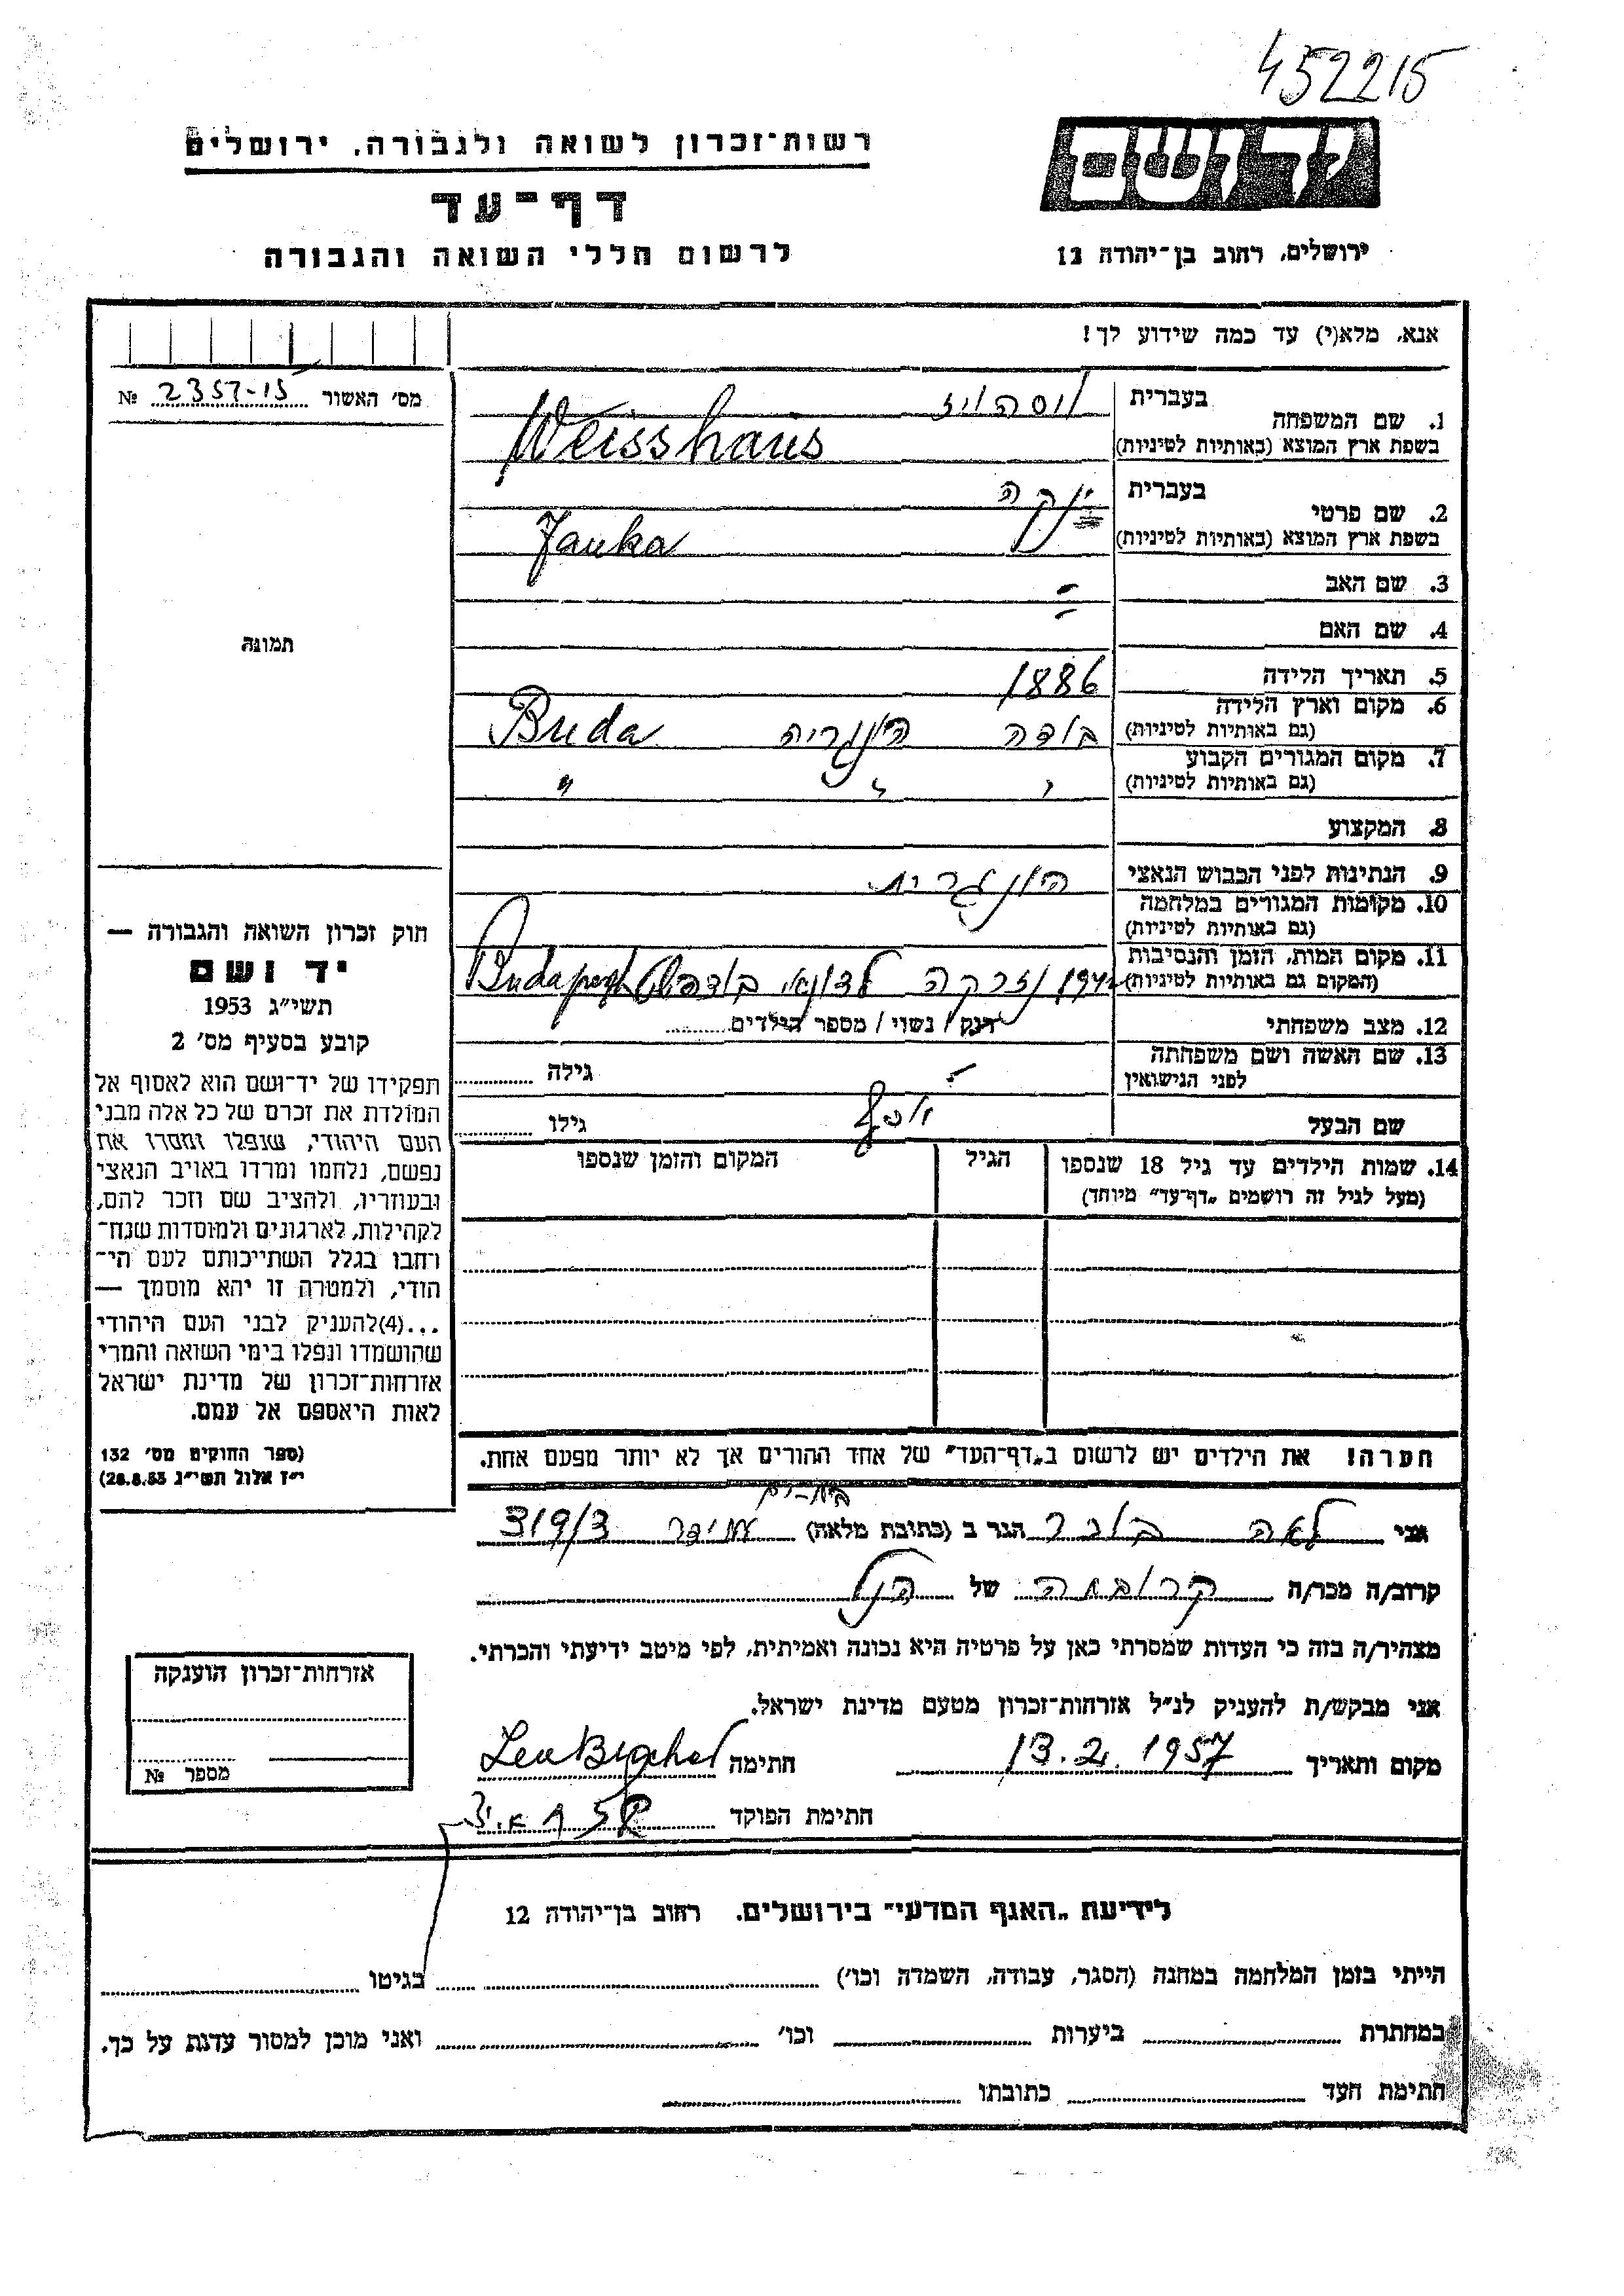 452215
יד ושם
ירושלים, רחוב בן־יהודה 12
רשות־זכרון לשואה ולגבורה, ירושלים
דף־עד
לרשום חללי השואה והגבורה
אנא, מלא(י) עד כמה שידוע לך!
מס׳ האשור 2357-15 №
1. שם המשפחה
בעברית
בשפת ארץ המוצא (באותיות לטיניות) Weisshaus
2. שם פרטי
בעברית ינקה
בשפת ארץ המוצא (באותיות לטיניות) Janka
3. שם האב -
4. שם האם -
תמונה
5. תאריך הלידה 1886
6. מקום וארץ הלידה
(גם באותיות לטיניות) בודה הונגריה Buda
7. מקום המגורים הקבוע
(גם באותיות לטיניות) " " "
8. המקצוע
9. הנתינות לפני הכבוש הנאצי הונגרית
10. מקומות המגורים במלחמה
(גם באותיות לטיניות)
11. מקום המות, הזמן והנסיבות
(המקום גם באותיות לטיניות) נזרקה לדונאי בודפשט Budapest
12. מצב משפחתי רווק / נשוי / מספר הילדים
13. שם האשה ושם משפחתה
לפני הנישואין - גילה
שם הבעל יוסף גילו
14. שמות הילדים עד גיל 18 שנספו
(מעל לגיל זה רושמים „דף־עד״ מיוחד)
הגיל
המקום והזמן שנספו
הערה! את הילדים יש לרשום ב„דף־העד״ של אחד ההורים אך לא יותר מפעם אחת.
חוק זכרון השואה והגבורה —
יד ושם
תשי״ג 1953
קובע בסעיף מס׳ 2
תפקידו של יד־ושם הוא לאסוף אל
המולדת את זכרם של כל אלה מבני
העם היהודי, שנפלו ומסרו את
נפשם, נלחמו ומרדו באויב הנאצי
ובעוזריו, ולהציב שם וזכר להם,
לקהילות, לארגונים ולמוסדות שנח־
רחבו בגלל השתייכותם לעם הי־
הודי, ולמטרה זו יהא מוסמך —
...(4)להעניק לבני העם היהודי
שהושמדו ונפלו בימי השואה והמרי
אזרחות־זכרון של מדינת ישראל
לאות היאספם אל עמם.
(ספר החוקים מס׳ 132
י״ז אלול תשי״ג 28.8.53)
בת-ים
אני לאה הגר ב (כתובת מלאה) עמידר 319/3
קרוב/ה מכר/ה קרובתה של הנ״ל
מצהיר/ה בזה כי העדות שמסרתי כאן על פרטיה היא נכונה ואמיתית, לפי מיטב ידיעתי והכרתי.
אני מבקש/ת להעניק לנ״ל אזרחות־זכרון מטעם מדינת ישראל.
מקום ותאריך 13.2.1957 חתימה
חתימת הפוקד
אזרחות־זכרון הוענקה
מספר №
לידיעת „האגף המדעי״ בירושלים. רחוב בן־יהודה 12
הייתי בזמן המלחמה במחנה (הסגר, עבודה, השמדה וכו׳) בגיטו
במחתרת ביערות וכו׳ ואני מוכן למסור עדות על כך.
חתימת העד כתובתו